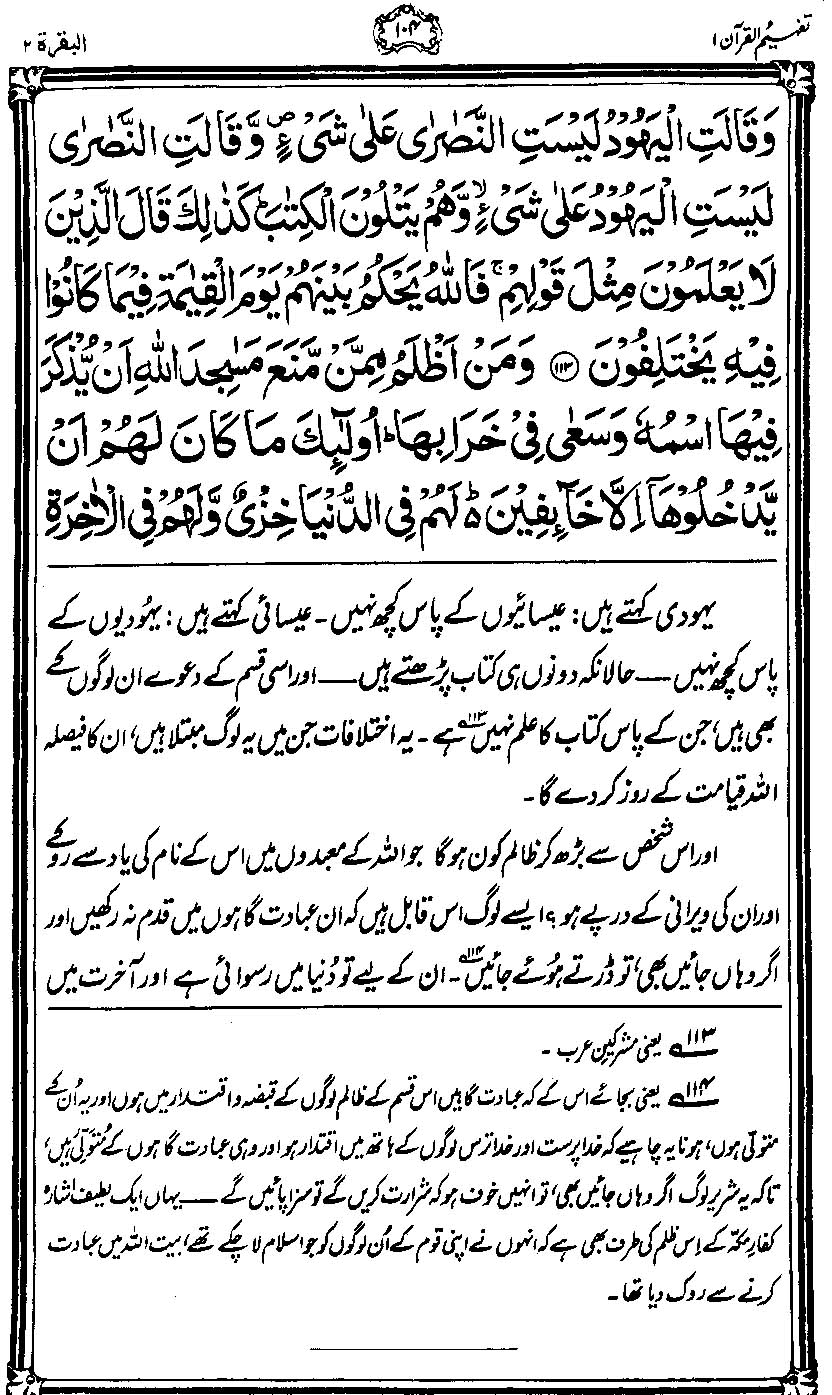 تفہیم القرآن ۱
۱۰۴
البقرۃ ۲
وَقَالَتِ الْیَهُوْدُ لَیْسَتِ النَّصٰرٰی عَلٰی شَیْءٍ ۪ وَّقَالَتِ النَّصٰرٰی
لَیْسَتِ الْیَهُوْدُ عَلٰی شَیْءٍ ۙ وَّهُمْ یَتْلُوْنَ الْکِتٰبَ ؕ کَذٰلِكَ قَالَ الَّذِیْنَ
لَا یَعْلَمُوْنَ مِثْلَ قَوْلِهِمْ ۚ فَاللّٰهُ یَحْکُمُ بَیْنَهُمْ یَوْمَ الْقِیٰمَةِ فِیْمَا کَانُوْا
فِیْهِ یَخْتَلِفُوْنَ ﴿۱۱۳﴾ وَمَنْ اَظْلَمُ مِمَّنْ مَّنَعَ مَسٰجِدَ اللّٰهِ اَنْ یُّذْکَرَ
فِیْهَا اسْمُهٗ وَسَعٰی فِیْ خَرَابِهَا ؕ اُولٰٓئِكَ مَا کَانَ لَهُمْ اَنْ
یَّدْخُلُوْهَاۤ اِلَّا خَآئِفِیْنَ ۬ؕ لَهُمْ فِی الدُّنْیَا خِزْیٌ وَّلَهُمْ فِی الْاٰخِرَةِ
یہودی کہتے ہیں: عیسائیوں کے پاس کچھ نہیں۔ عیسائی کہتے ہیں: یہُودیوں کے
پاس کچھ نہیں —— حالانکہ دونوں ہی کتاب پڑھتے ہیں —— اور اسی قسم کے دعوے ان لوگوں کے
بھی ہیں، جن کے پاس کتاب کا علم نہیں ۱۱۳ ہے۔ یہ اختلافات جن میں یہ لوگ مبتلا ہیں، ان کا فیصلہ
اللہ قیامت کے روز کر دے گا۔
اور اس شخص سے بڑھ کر ظالم کون ہو گا جو اللہ کے معبدوں میں اس کے نام کی یاد سے روکے
اور ان کی ویرانی کے درپے ہو؟ ایسے لوگ اس قابل ہیں کہ ان عبادت گاہوں میں قدم نہ رکھیں اور
اگر وہاں جائیں بھی، تو ڈرتے ہُوئے جائیں ۱۱۴۔ ان کے لیے تو دُنیا میں رسوائی ہے اور آخرت میں
۱۱۳ یعنی مشرکینِ عرب۔
۱۱۴ یعنی بجائے اس کے کہ عبادت گاہیں اس قسم کے ظالم لوگوں کے قبضہ و اقتدار میں ہوں اور یہ اُن کے
متولی ہوں، ہونا یہ چاہیے کہ خدا پرست اور خدا ترس لوگوں کے ہاتھ میں اقتدار ہو اور وہی عبادت گاہوں کے مُتَولّی ہیں،
تاکہ یہ شریر لوگ اگر وہاں جائیں بھی، تو انہیں خوف ہو کہ شرارت کریں گے تو سزا پائیں گے —— یہاں ایک لطیف اشارہ
کفارِ مکّہ کے اِس ظلم کی طرف بھی ہے کہ انہوں نے اپنی قوم کے اُن لوگوں کو جو اسلام لا چکے تھے، بیت اللہ میں عبادت
کرنے سے روک دیا تھا۔